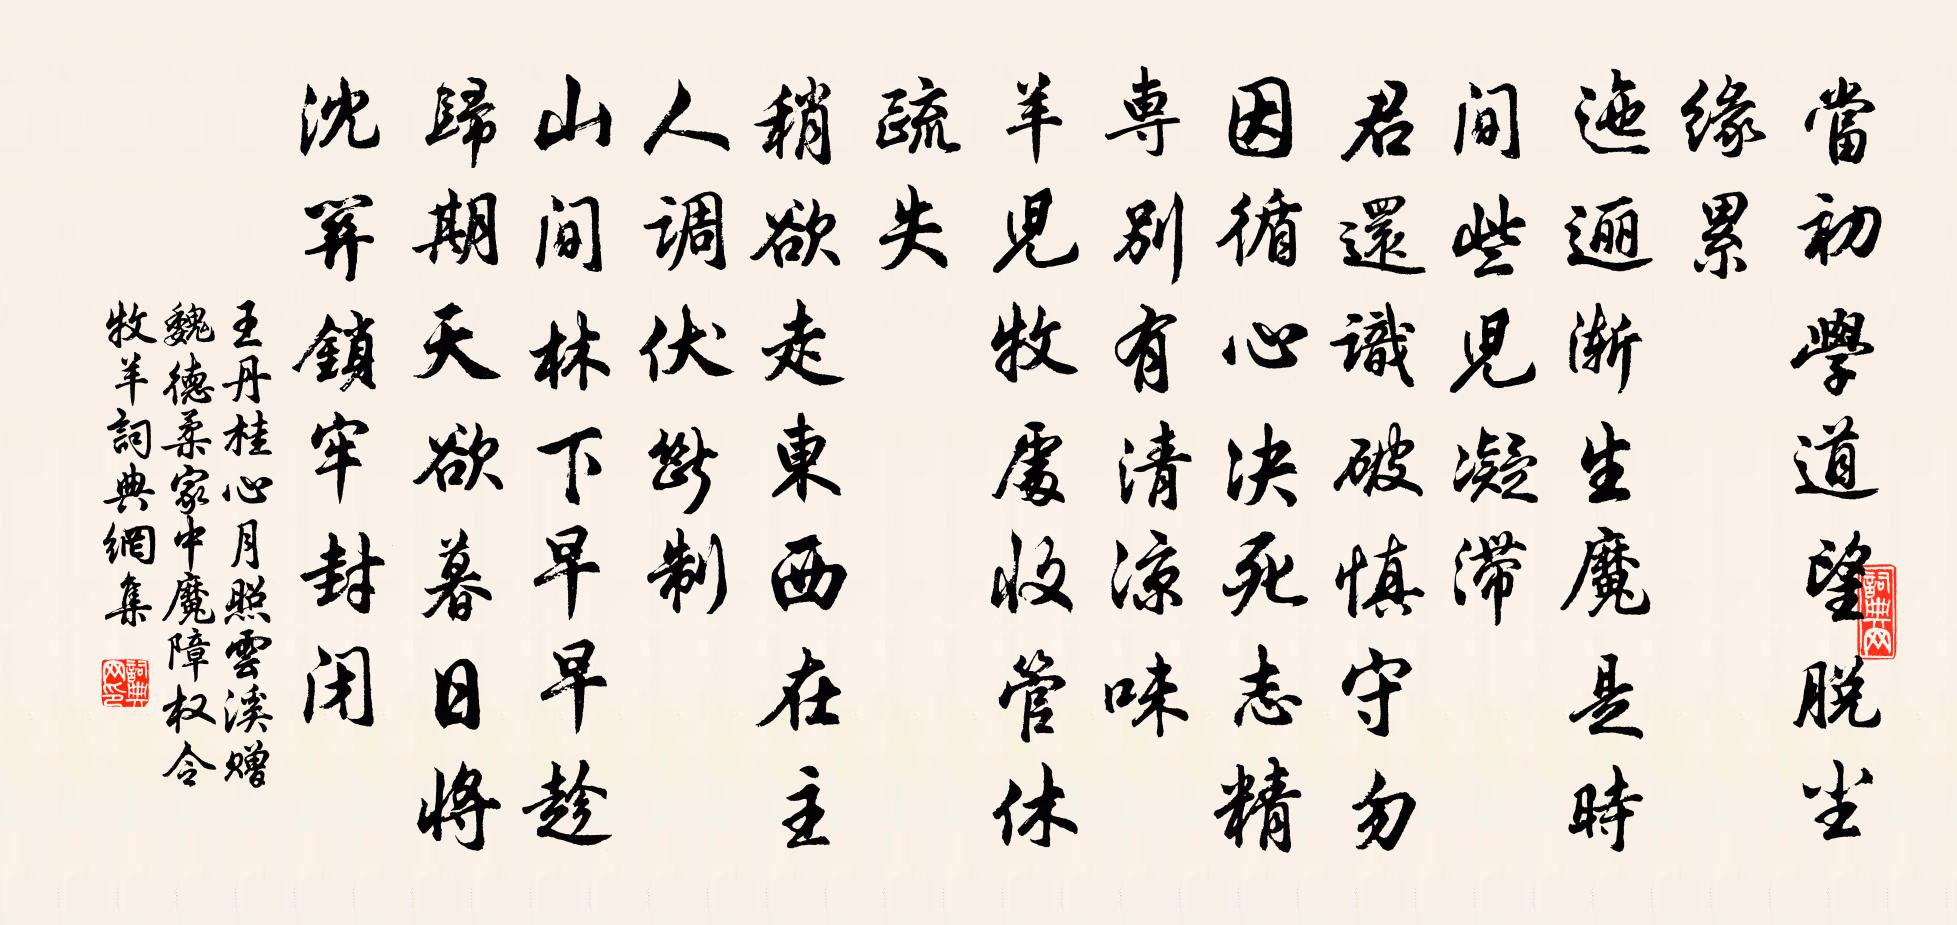 當初學道望脱尘
缘累
迤逦渐生魔是時
间些児凝滞
君還識破慎守勿
因循心决死志精
専别有清凉味
羊児牧處收管休
疏失
稍欲走東西在主
人调伏斷制
山间林下早早趁
歸期天欲暮日将
沈
牢封闭
王丹桂心月照雲溪赠
魏德柔家中魔障权令
牧羊詞典網集
詞典网